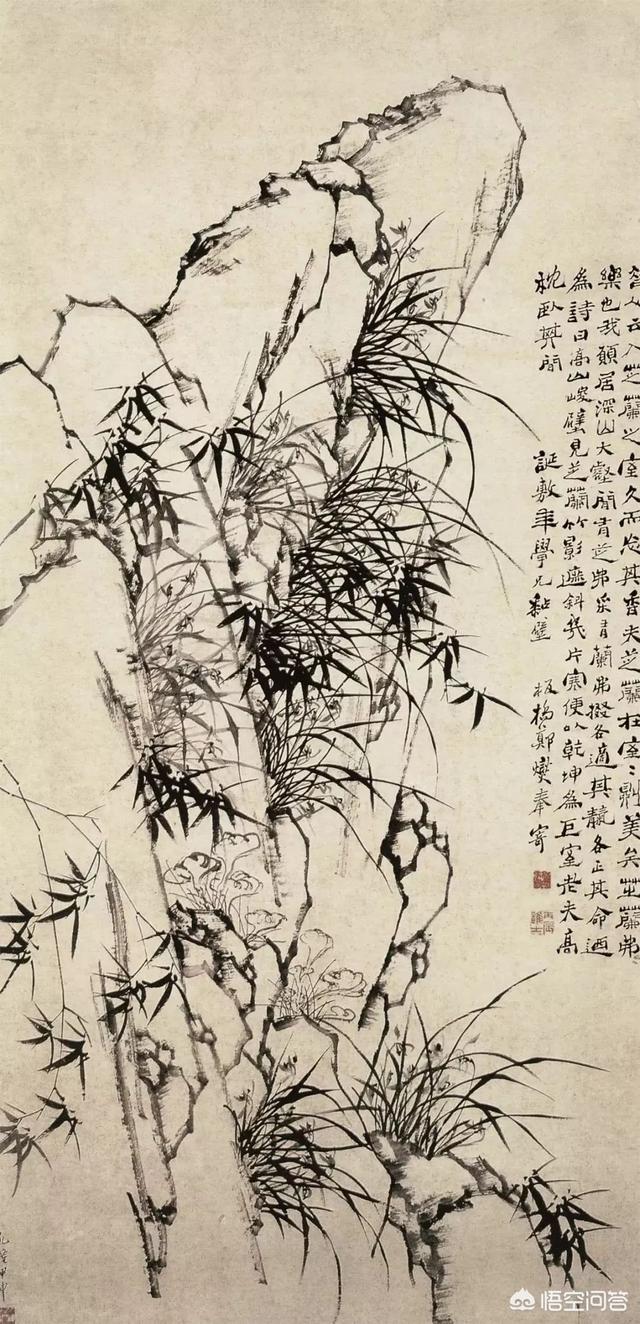 昔人云入芝蘭之室久而忘其香夫芝蘭在室室則美矣芝蘭弗
樂也我願居深山大壑間有芝弗采有蘭弗掇各適其各正其命迺
為詩曰高山峻壁見芝蘭竹影遮斜幾片寒便以乾坤為巨室老夫高
枕臥其間
誕敷年學兄黏壁
板橋鄭燮奉寄
悟空问答